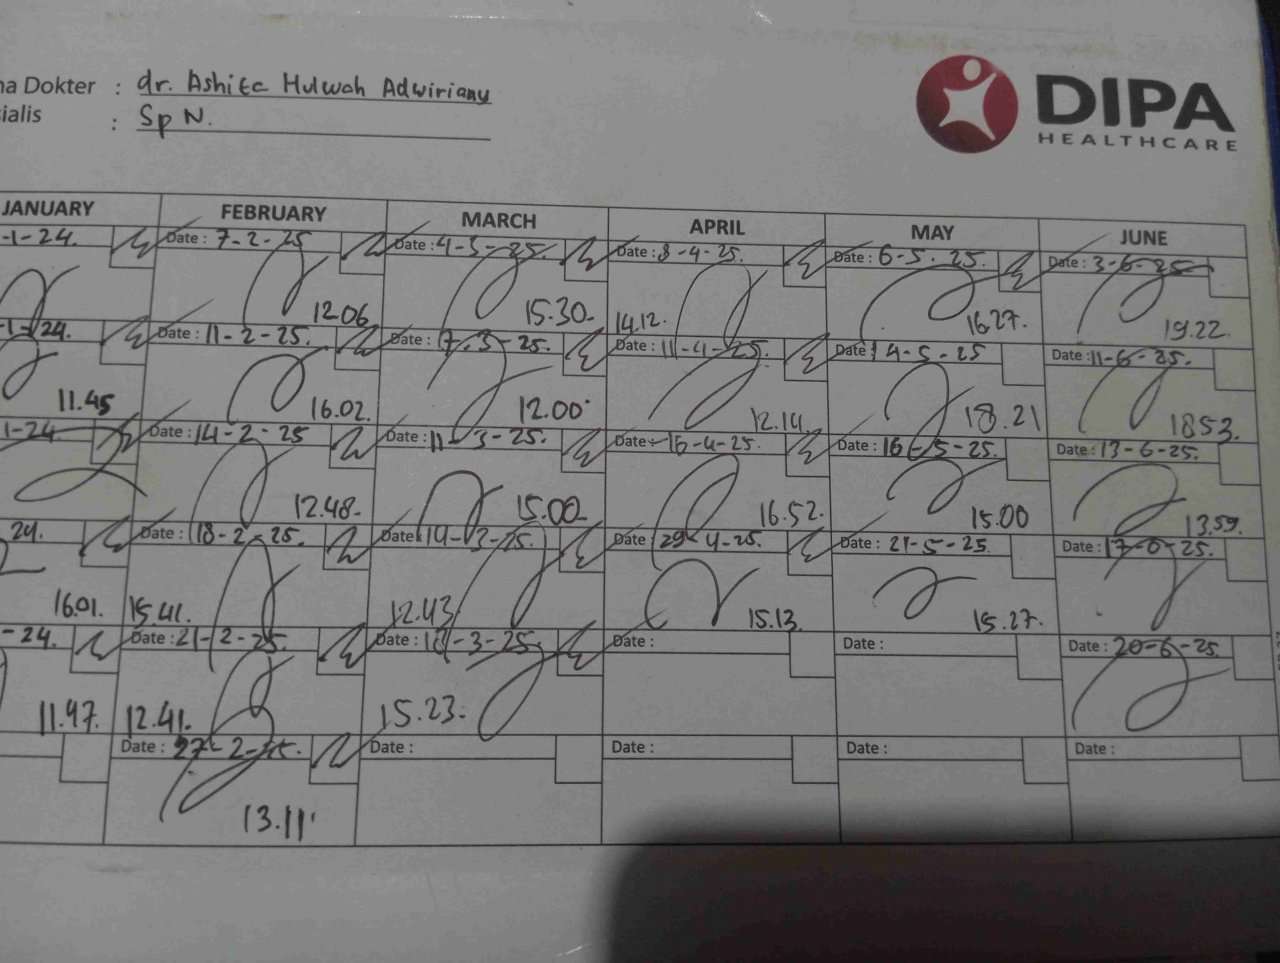 na Dokter : dr. Ashita Mulwah Adwiriany
ialis : Sp N.
DIPA
HEALTHCARE
JANUARY FEBRUARY MARCH APRIL MAY JUNE
-1-24. Date : 7-2-25 Date : 4-3-25. Date : 8-4-25. Date : 6-5.25. Date : 3-6-25
12.06 15.30. 14.12. 16.27. 19.22.
-1-24. Date : 11-2-25. Date : 7.3-25. Date : 11-4-25. Date : 14-5-25 Date : 11-6-25.
11.45 16.02. 12.00 12.14. 18.21 18.53.
1-24. Date : 14-2-25 Date : 11-3-25. Date : 16-4-25. Date : 16-5-25. Date : 13-6-25.
12.48. 15.00 16.52. 15.00 13.59.
24. Date : 18-2-25. Date : 14-3-25. Date : 29-4-25. Date : 21-5-25. Date : 17-6-25.
16.01. 15.41. 12.43. 15.13. 15.27.
-24. Date : 21-2-25. Date : 18-3-25. Date : Date : Date : 20-6-25.
11.47. 12.41. 15.23.
Date : 27-2-25. Date : Date : Date : Date :
13.11